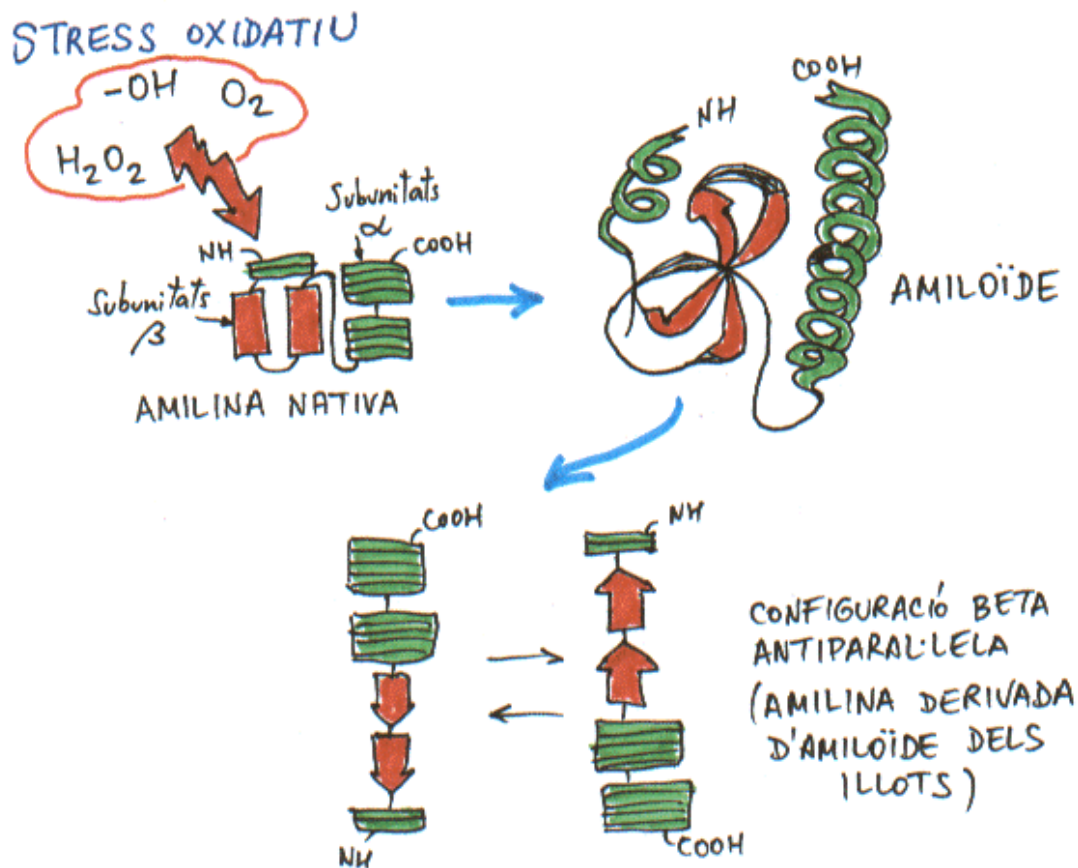 STRESS OXIDATIU
-OH O₂
H₂O₂
NH
Subunitats
α
COOH
Subunitats
β
AMILINA NATIVA
NH
COOH
AMILOÏDE
COOH
NH
NH
COOH
CONFIGURACIÓ BETA
ANTIPARAL·LELA
(AMILINA DERIVADA
D'AMILOÏDE DELS
ILLOTS)